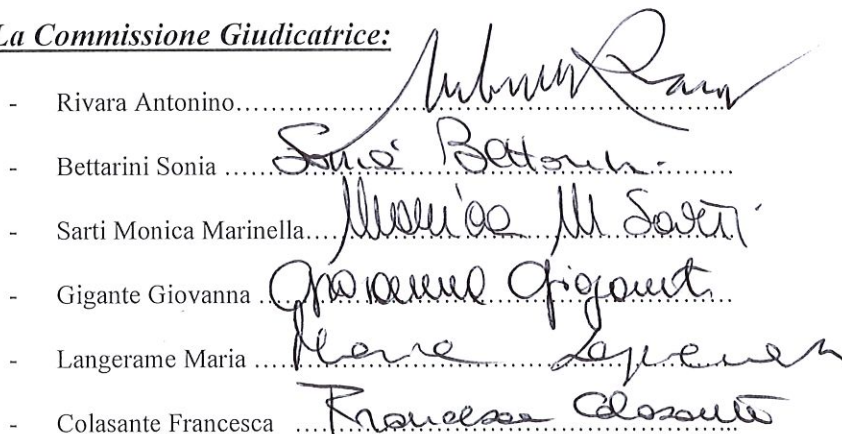 La Commissione Giudicatrice:
- Rivara Antonino.............................. Antonino Rivara
- Bettarini Sonia .............................. Sonia Bettarini
- Sarti Monica Marinella.............................. Monica M Sarti
- Gigante Giovanna .............................. Giovanna Gigante
- Langerame Maria .............................. Maria Langerame
- Colasante Francesca .............................. Francesca Colasante